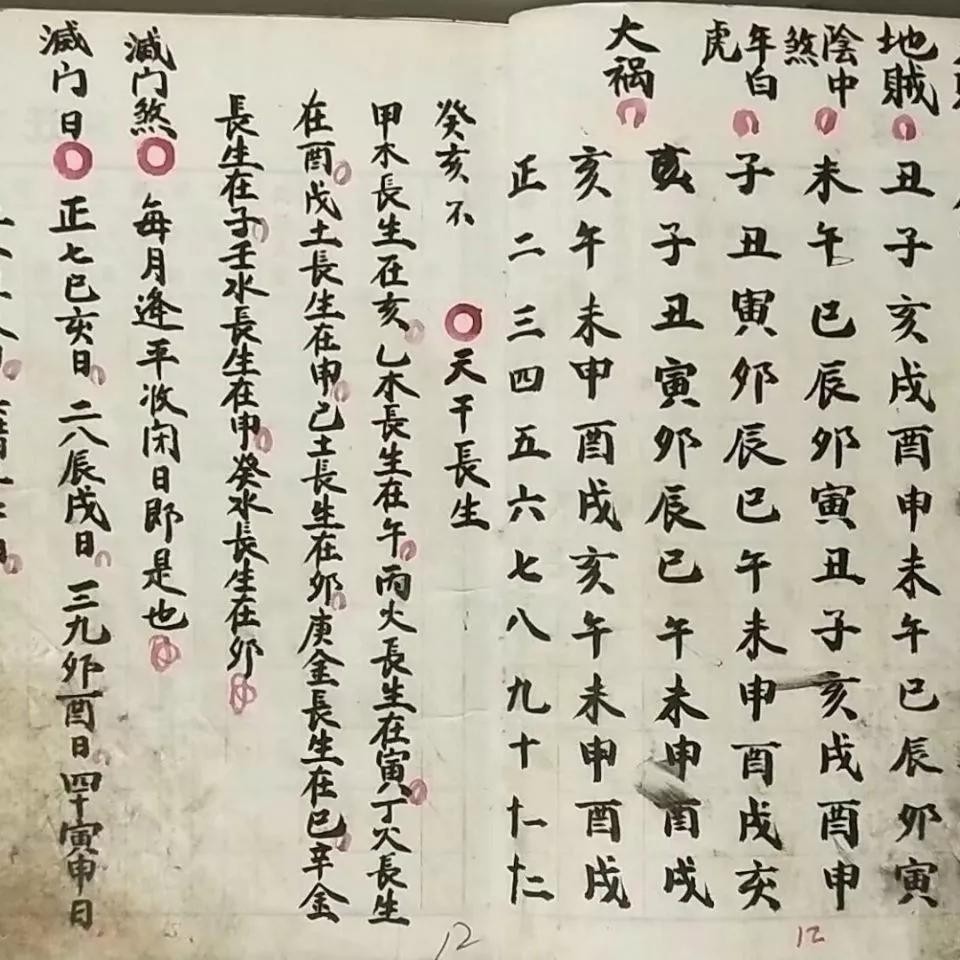 地賊 丑子亥戌酉申未午巳辰卯寅
陰中煞 未午巳辰卯寅丑子亥戌酉申
年白虎 子丑寅卯辰巳午未申酉戌亥
大祸 亥子丑寅卯辰巳午未申酉戌
亥午未申酉戌亥午未申酉戌
正二三四五六七八九十十一十二
癸亥不 天干長生
甲木長生在亥 乙木長生在午 丙火長生在寅 丁火長生
在酉 戊土長生在申 己土長生在卯 庚金長生在巳 辛金
長生在子 壬水長生在申 癸水長生在卯
滅门煞 每月逢平收闭日即是也
滅门日 正七巳亥日 二八辰戌日 三九卯酉日 四十寅申日
12
12